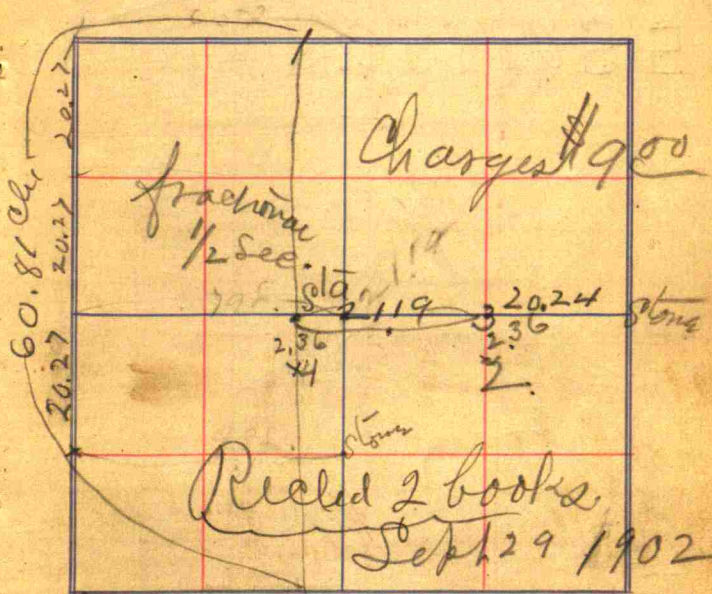 20.27
20.27
20.27
60.81 Chs
Charges $9.00
fractional
1/2 Sec.
Sta
2 21.19
3 20.24
Stone
2.36
4
2.36
2
Stone
2 books
Sept 29 1902